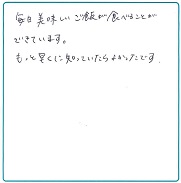 毎日美味しいご飯が食べることが
できています。
もっと早くに知っていたらよかったです。